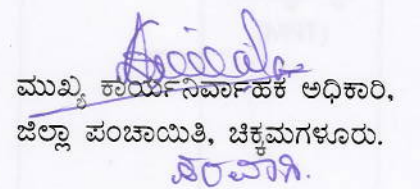 ಮುಖ್ಯ ಕಾರ್ಯನಿರ್ವಾಹಕ ಅಧಿಕಾರಿ,
ಜಿಲ್ಲಾ ಪಂಚಾಯಿತಿ, ಚಿಕ್ಕಮಗಳೂರು.
ಪರವಾಗಿ.